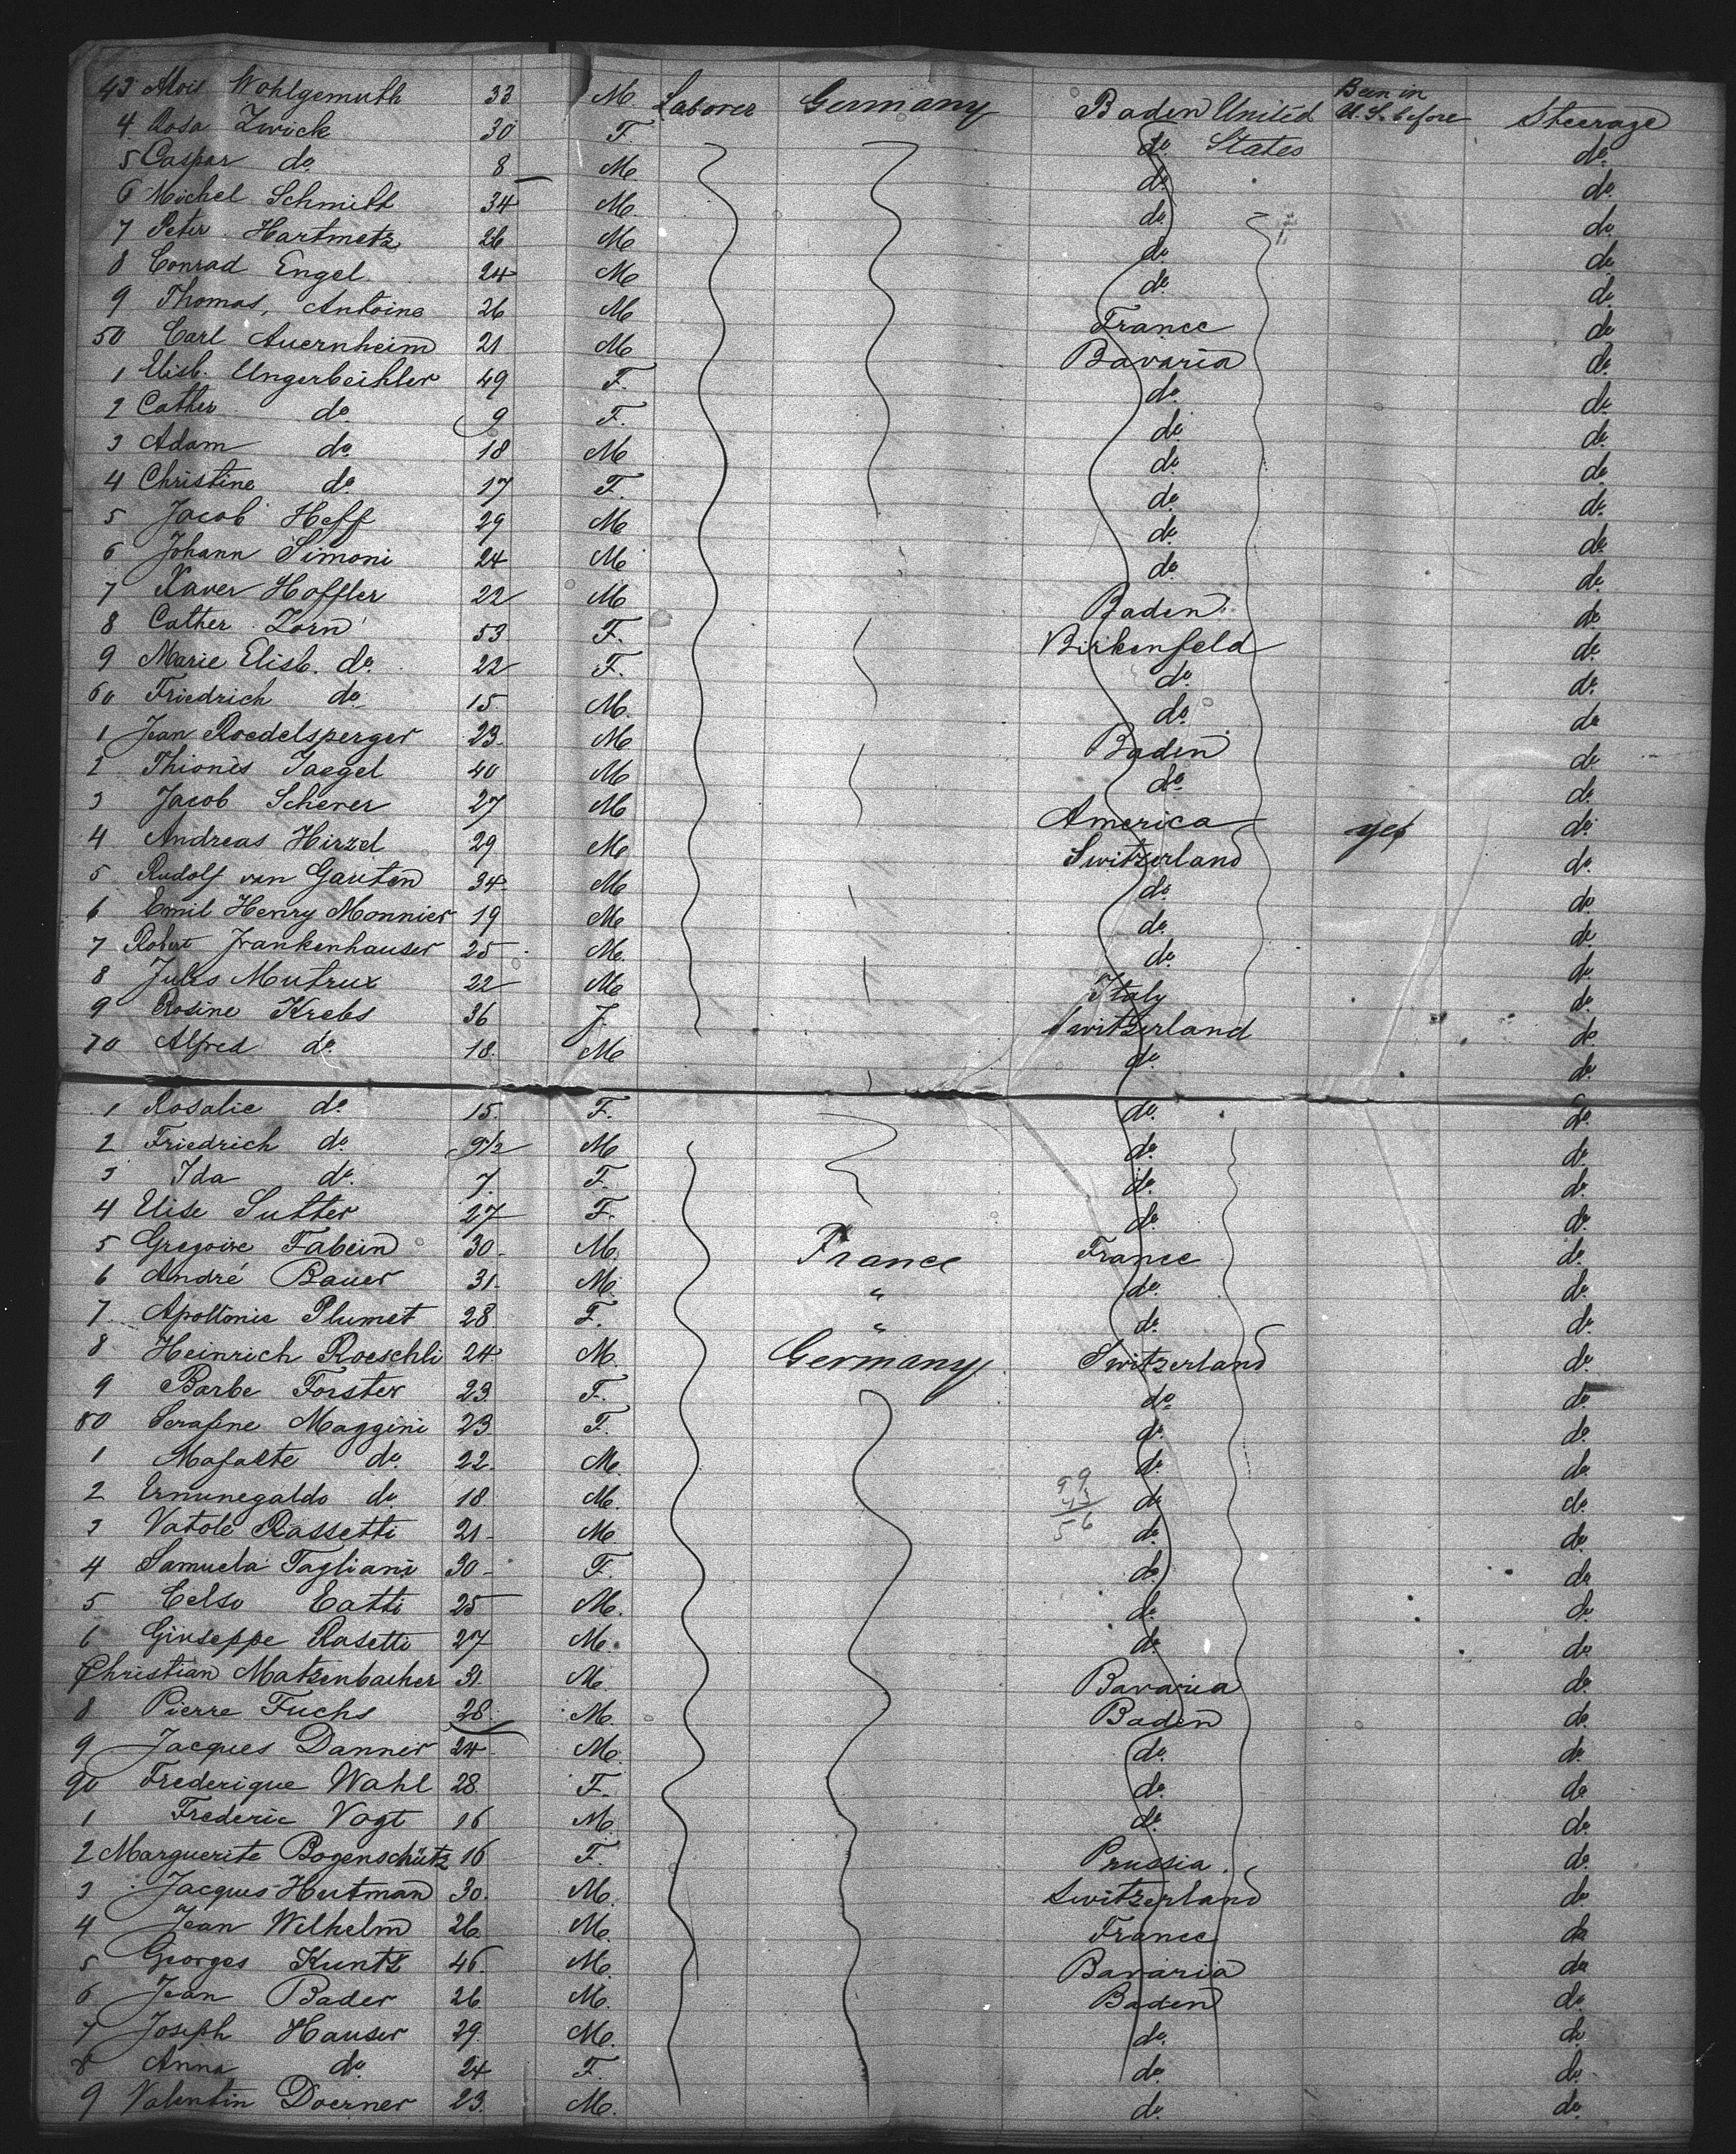 Been in
43 Alois Wohlgemuth 33 M. Laborer Germany Baden United U.S. before Steerage
4 Rosa Zwick 30 F. do. States do.
5 Caspar do. 8 M. do. do.
6 Michel Schmitt 34 M. do. do.
7 Peter Hartmetz 26 M do. do.
8 Conrad Engel 24 M do. do.
9 Thomas, Antoine 26 M France do.
50 Carl Auernheim 21 M Bavaria do.
1 Elisb. Ungerbeihler 49 F. do. do.
2 Cather do. 9 F. do. do.
3 Adam do. 18 M do. do.
4 Christine do. 17 F. do. do.
5 Jacob Heff 29 M do. do.
6 Johann Simoni 24 M do. do.
7 Xaver Hoffler 22 M Baden do.
8 Cather Zorn 53 F. Birkenfeld do.
9 Marie Elisb. do. 22 F. do. do.
60 Friedrich do. 15 M. do. do.
1 Jean Roedelsperger 23 M Baden do.
2 Thionès Jaegel 40 M do. do.
3 Jacob Scherer 27 M America yes do.
4 Andreas Hirzel 29 M Switzerland do.
5 Rudolf van Gauten 34 M do. do.
6 Emil Henry Monnier 19 M do. do.
7 Robert Frankenhauser 25 M. do. do.
8 Jules Mutrux 22 M Italy do.
9 Rosine Krebs 36 F. Switzerland do.
70 Alfred do. 18. M do. do.
1 Rosalie do. 15. F. do. do.
2 Friedrich do. 9½ M do. do.
3 Ida do. 7. F. do. do.
4 Elise Sutter 27 F. do. do.
5 Gregoire Fabein 30 M. France France do.
6 André Bauer 31. M. " do. do.
7 Apollonie Plumet 28. F. " do. do.
8 Heinrich Roeschli 24 M. Germany Switzerland do.
9 Barbe Forster 23. F. do. do.
80 Serafine Maggini 23. F. do. do.
1 Mafalte do. 22. M. do. do.
2 Ernunegaldo do. 18 M. 99 43 56 do. do.
3 Vatole Rassetti 21 M do. do.
4 Samuela Tagliani 30 F. do. do.
5 Celso Catti 25 M. do. do.
6 Giuseppe Rasetti 27 M. do. do.
7 Christian Matzenbacher 31. M. Bavaria do.
8 Pierre Fuchs 28. M. Baden do.
9 Jacques Danner 24 M. do. do.
90 Frederique Wahl 28. F. do. do.
1 Frederic Vogt 16 M. do. do.
2 Marguerite Bogenschütz 16 F. Prussia do.
3 Jacques Hutman 30. M. Switzerland do.
4 Jean Wilhelm 26. M. France do.
5 Georges Kuntz 46. M. Bavaria do.
6 Jean Bader 26 M. Baden do.
7 Joseph Hauser 29. M. do. do.
8 Anna do. 24 F. do. do.
9 Valentin Doerner 23. M. do. do.